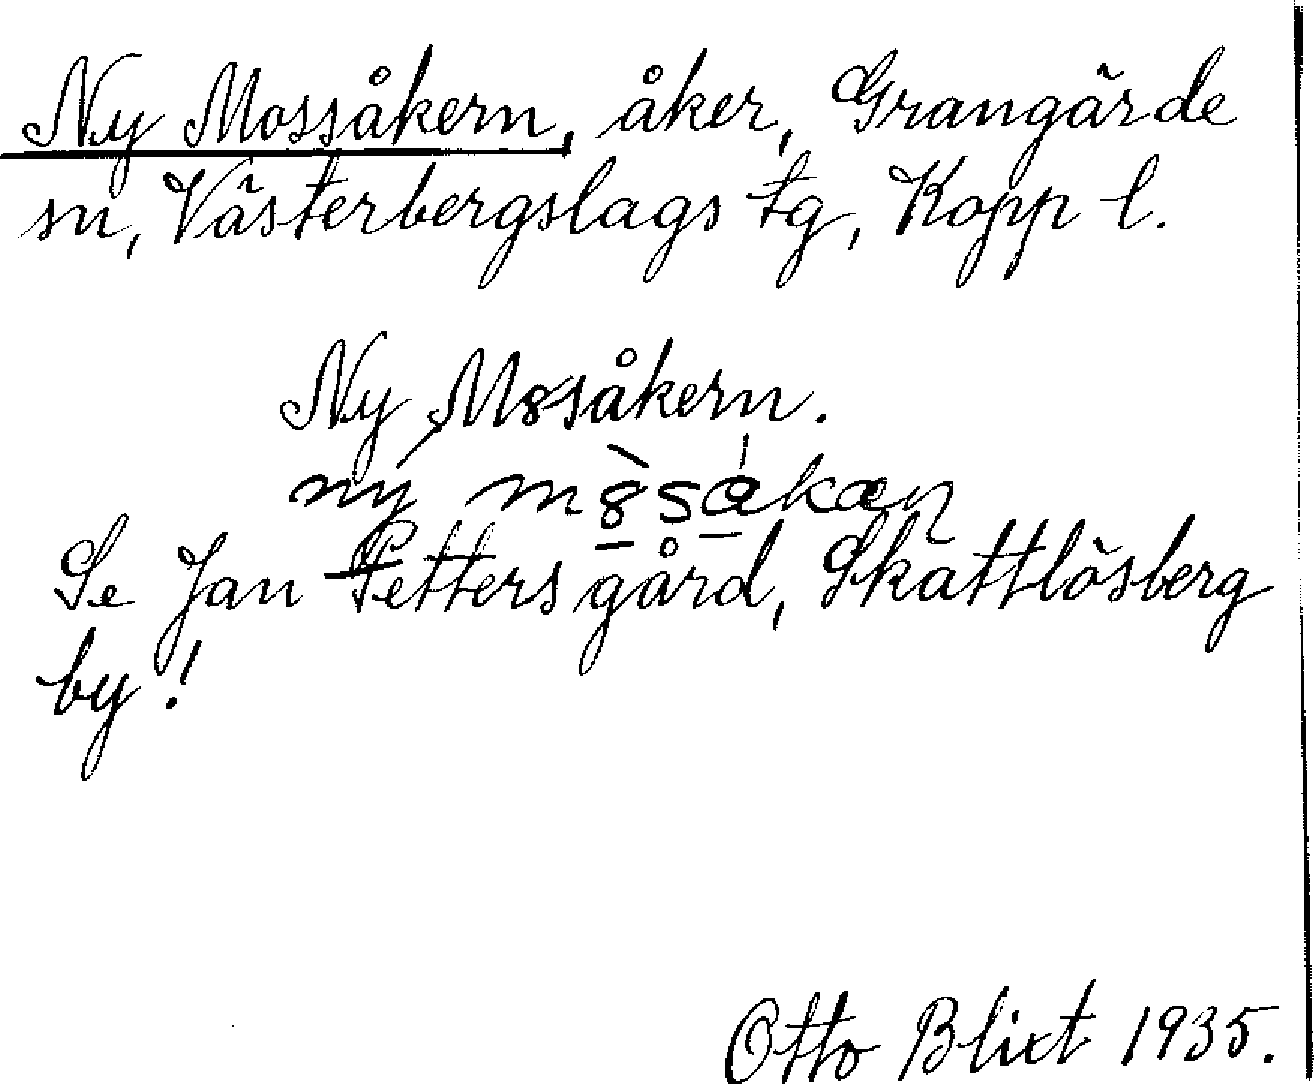 Ny Mossåkern, åker, Grangärde
sn, Västerbergslags tg, Kopp l.
Ny M8såkern.
ny m8såkæn
Se Jan Petters gård, Skattlösberg
by!
Otto Blixt 1935.